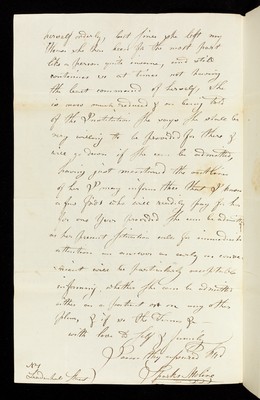 herself orderly, but since she left my
House she has lived for the most part
like a person quite insane, and still
continues so at times not having
the least command of herself she
is now much reduced & on being told
of the Institution She says she would be
very willing to be provided for there &
will go down if she can be admitted,
having just mentioned the
of her I may inform thee that I know
a few frds who will readily pay for her
for one Year provided she can be admitted
as her present situation calls for immediate
attention an answer as early as conve-
nient will be particularly acceptable
informing whether she can be admitted
either as a patient or on any other
plan, & if so the Terms &
with love to Self & family
I am thy assured frd
Charles
No 7
Street